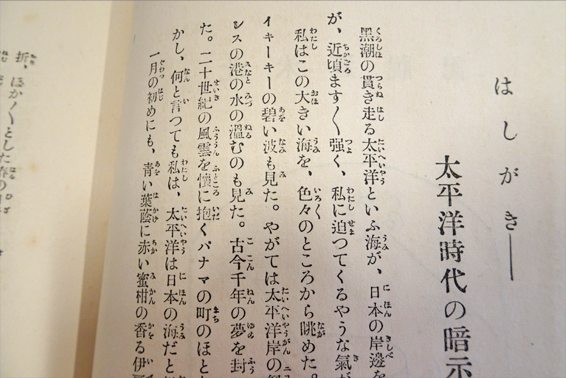 はしがき──
太平洋時代の暗示
黑潮の貫き走る太平洋といふ海が、日本の岸邊を
が、近頃ます〱强く、私に迫つてくるやうな氣が
私はこの大きい海を、色々のところから眺めた。
イキーキーの碧い波も見た。やがては太平洋岸の
スの港の水の溫むのも見た。古今千年の夢を封
た。二十世紀の風雲を懷に抱くパナマの町のほと
かし、何と言つても私は、太平洋は日本の海だと
一月の初めにも、靑い葉蔭に赤い蜜柑の香る伊
折、ほか〱とした春の